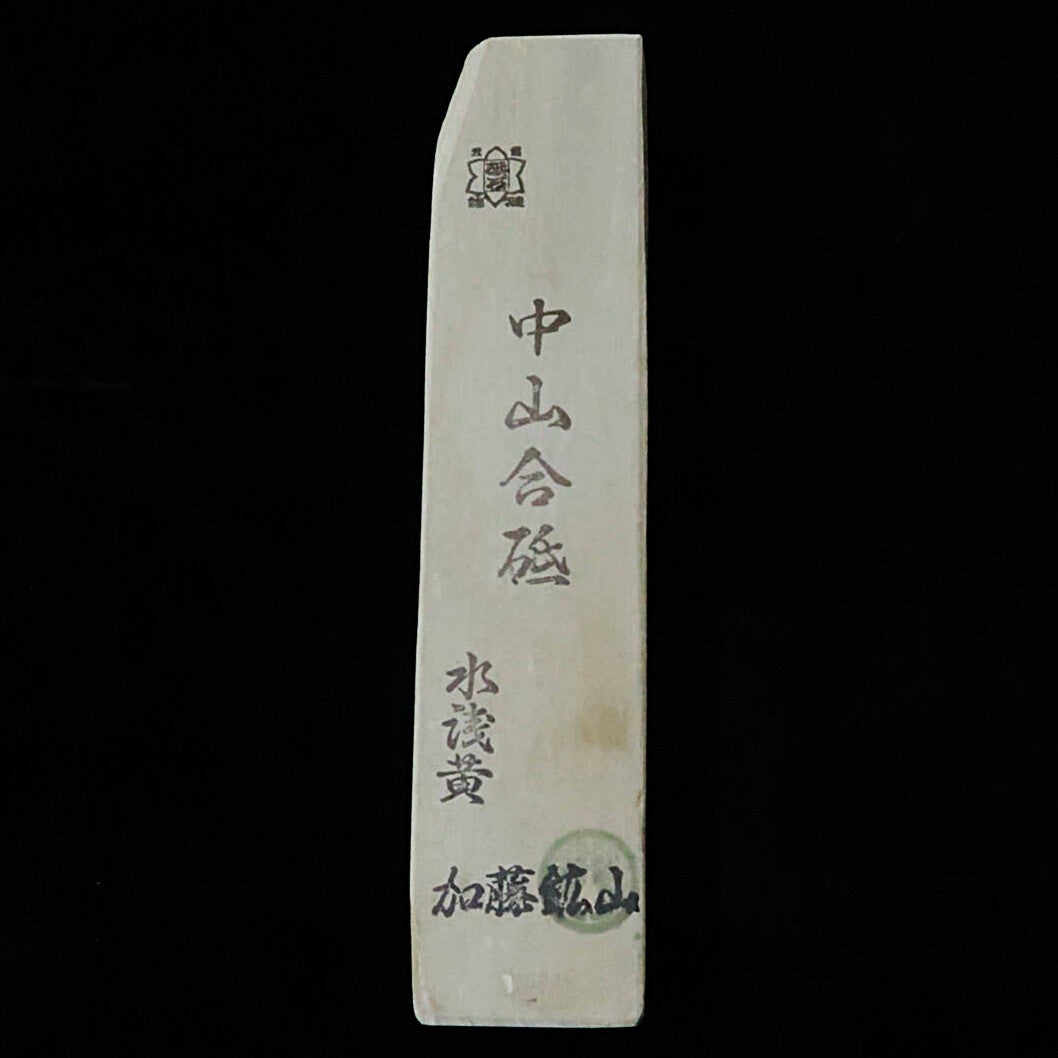 中山合砥
水浅黄
加藤鉱山